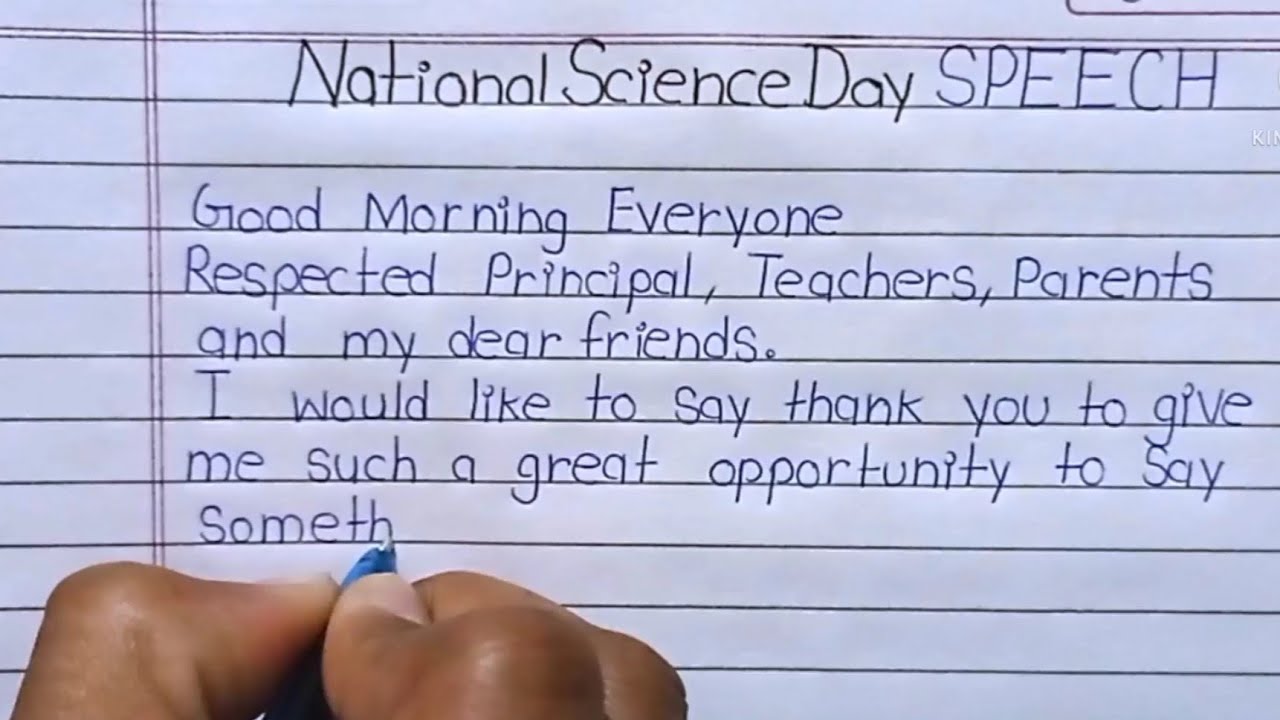 National Science Day SPEECH
Good Morning Everyone
Respected Principal, Teachers, Parents
and my dear friends.
I would like to say thank you to give
me such a great opportunity to Say
Someth